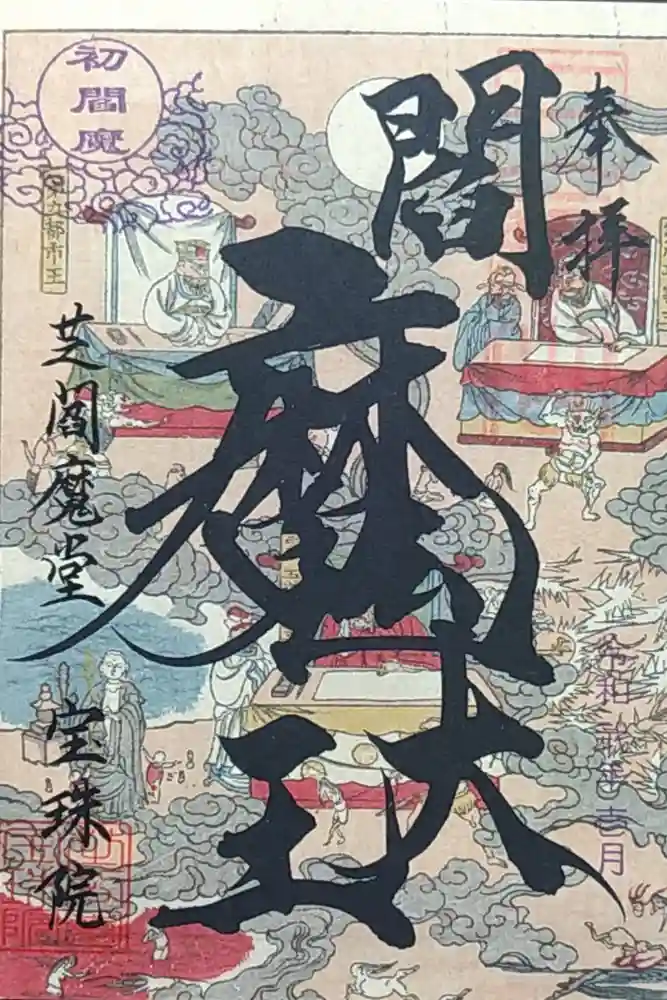 奉拝
閻魔大王
初閻魔
芝閻魔堂　宝珠院
都市王
令和二年吉月